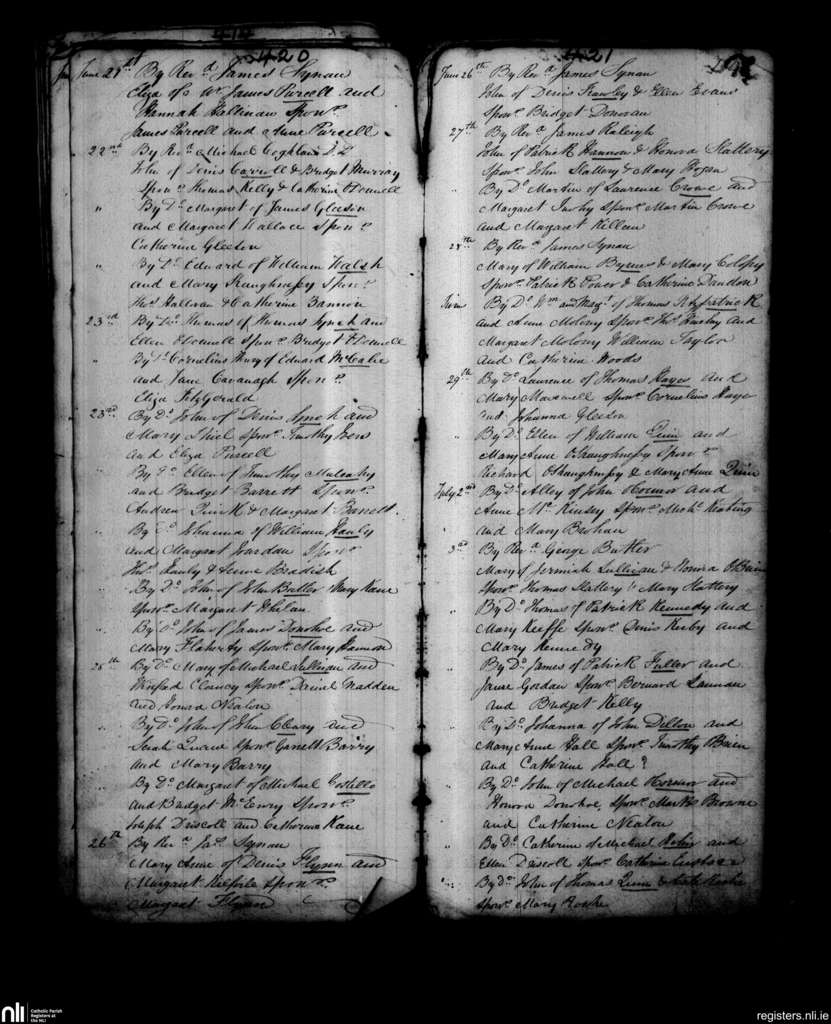 414
420
June 21st By Revd James Synan
Eliza of Wm James Purcell and
Hannah Hallinan Sponr
James Purcell and Anne Purcell
22nd By Revd Michael Coghlan
John of Denis Carroll & Bridget Murray
Sponr Thomas Kelly & Catherine O'Donnell
" By Do Margaret of James Gleeson
and Margaret Wallace Sponr
Catherine Gleeson
" By Do Edward of William Walsh
and Mary Shaughnessy Sponr
Thos Hallinan & Catherine Bannon
23rd By Do Thomas of Thomas Lynch and
Ellen O'Donnell Sponr Bridget O'Donnell
" By Do Cornelius Henry of Edward McCabe
and Jane Cavanagh Sponr
Eliza FitzGerald
23rd By Do John of Denis Lynch and
Mary Shiel Sponr Timothy
and Eliza Purcell
" By Do Ellen of Timothy Mulcahy
and Bridget Barrett Sponr
Andrew Quirk & Margaret Barrett
" By Do Johanna of William Hanly
and Margaret Sponr
Thos Hanly & Beddish
" By Do John of John Butler Mary Kane
Sponr Margaret Whelan
" By Do John of James Donohoe and
Mary Flaherty Sponr Mary Hannon
25th By Do Mary of Michael Sullivan and
Winifred Clancy Sponr Daniel Madden
and Honora Neaton
" By Do John of John Cleary and
Sarah Sponr Garrett Barry
and Mary Barry
" By Do Margaret of Michael Costello
and Bridget McEnry Sponr
Joseph Driscoll and Catherine Kane
26th By Revd Jas Synan
Mary Anne of Denis Flynn and
Margaret Sponr
Margaret Flynn
421
June 26th By Revd James Synan
John of Denis Frawley & Ellen Evans
Sponr Bridget Donovan
27th By Revd James Raleigh
John of Patrick Hannon & Honora Slattery
Sponr John Slattery & Mary Hogan
" By Do Martin of Laurence Crowe and
Margaret Sponr Martin Crowe
and Margaret Killeen
28th By Revd James Synan
Mary of William Byrnes & Mary
Sponr Patrick Power & Catherine Dundon
Twins By Do Wm and Margt of Thomas Fitzpatrick
and Anne Molony Sponr Thos and
Margaret Molony William Taylor
and Catherine Woods
29th By Do Laurence of Thomas Hayes and
Mary Maxwell Sponr Cornelius Hayes
and Johanna Gleeson
" By Do Ellen of William Quin and
Mary Anne O'Shaughnessy Sponr
Richard O'Shaughnessy & Mary Anne Quin
July 2nd By Do Alley of John Connor and
Anne McKinley Sponr Michl Keating
and Mary Beehan
3rd By Revd George Butler
Mary of Jeremiah Sullivan & Honora O'Brien
Sponr Thomas Slattery & Mary Slattery
" By Do Thomas of Patrick Kennedy and
Mary Keeffe Sponr Denis Kirby and
Mary Kennedy
" By Do James of Patrick Fuller and
Jane Gordan Sponr Bernard
and Bridget Kelly
" By Do Johanna of John Dillon and
Mary Anne Hall Sponr Timothy O'Brien
and Catherine Hall
" By Do John of Michael Connor and
Honora Donohoe, Sponr Martin Browne
and Catherine Neaton
" By Do Catherine of Michael and
Ellen Driscoll Sponr Catherine
" By Do John of Thomas Quin &
Sponr Mary Roche
nli
Catholic Parish
Registers at
the NLI
registers.nli.ie